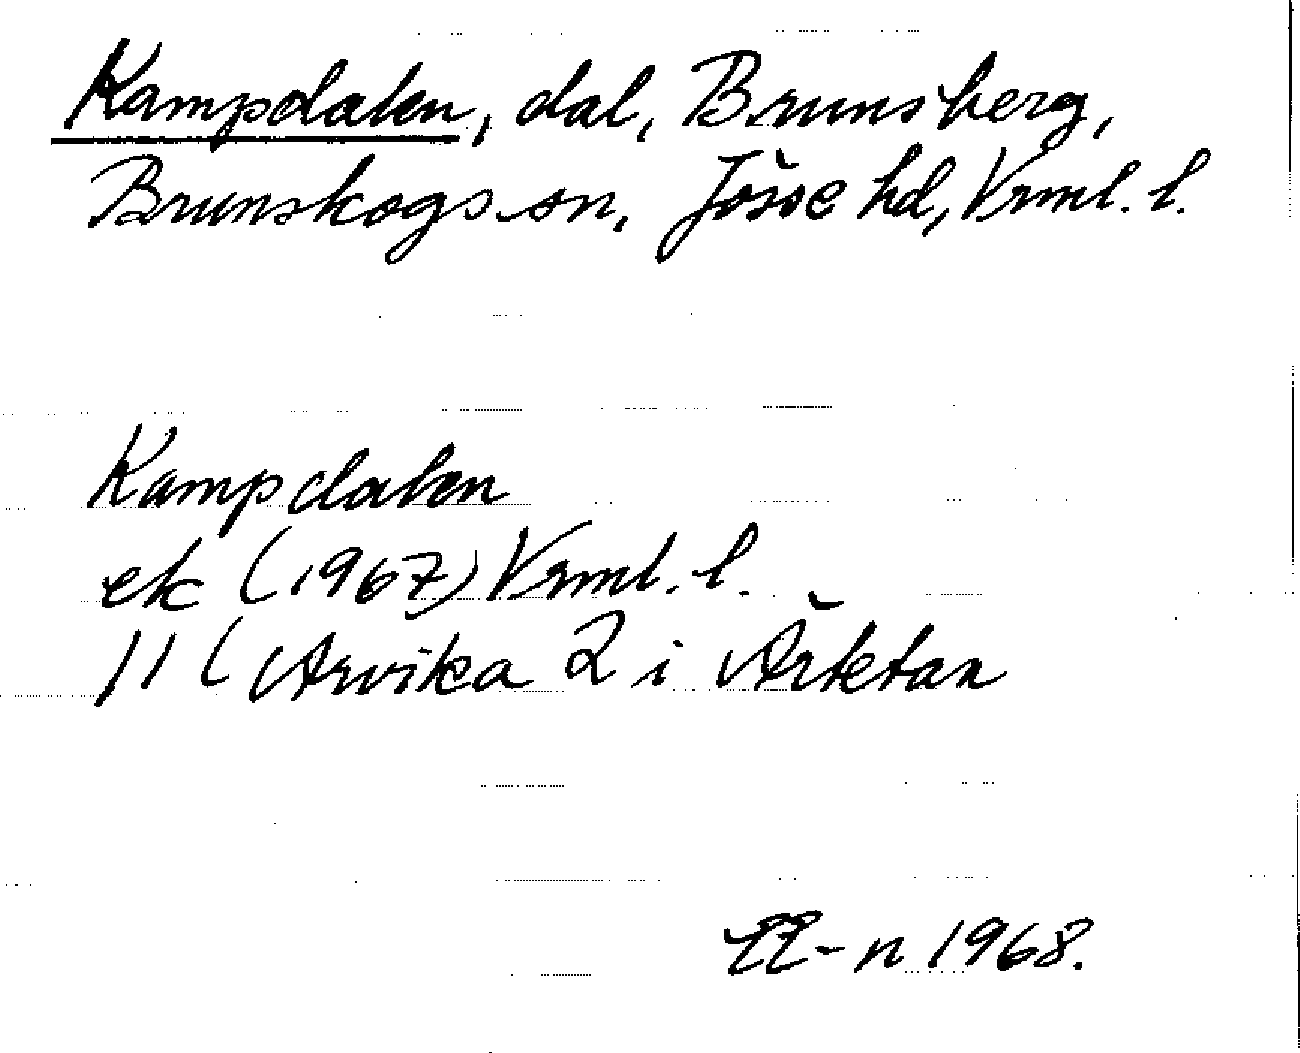 Kampdalen, dal, Brunsberg,
Brunskogs sn, Jösse hd, Vrml. l.
Kampdalen
ek (1967) Vrml. l.
11 (Arvika 2 i
-n 1968.